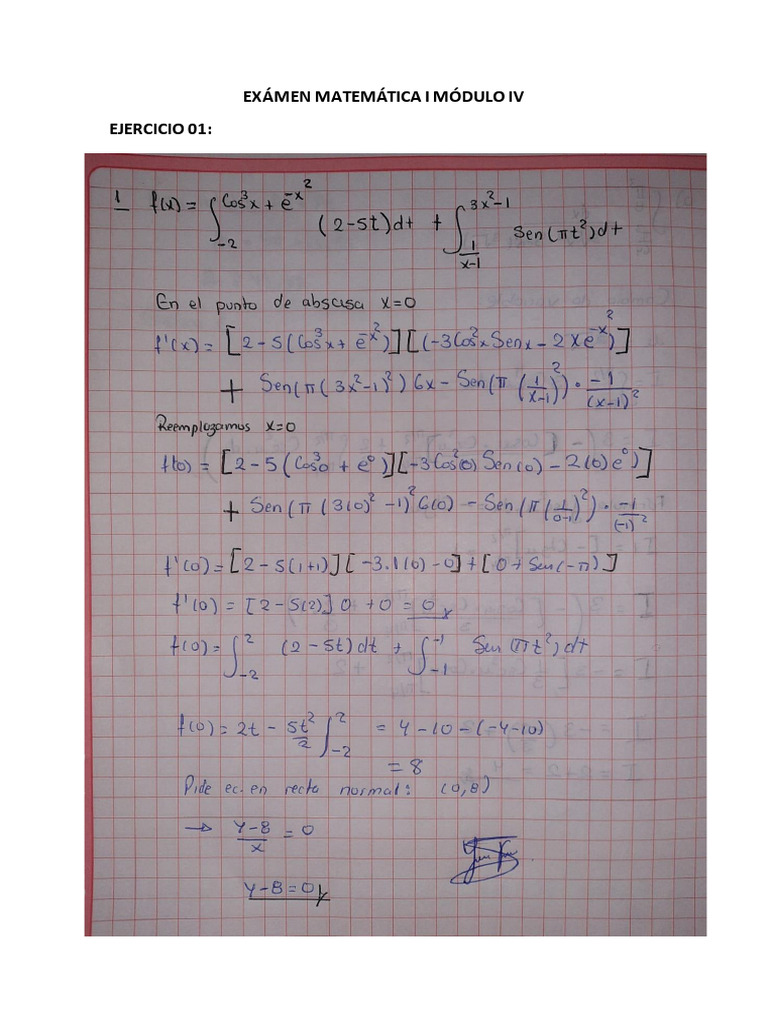 EXÁMEN MATEMÁTICA I MÓDULO IV
EJERCICIO 01:
1 f(x) = ∫_{-2}^{Cos³x + e^{-x²}} (2-5t)dt + ∫_{1/(x-1)}^{3x²-1} Sen(πt²)dt
En el punto de abscisa x=0
f'(x) = [2-5(Cos³x + e^{-x²})][(-3Cos²x Senx - 2xe^{-x²})]
+ Sen(π(3x²-1)²)6x - Sen(π(1/(x-1))²) · -1/(x-1)²
Reemplazamos x=0
f(0) = [2-5(Cos³0 + e⁰)][-3Cos²(0) Sen(0) - 2(0)e⁰)]
+ Sen(π(3(0)²-1)²6(0) - Sen(π(1/(0-1))²) · -1/(-1)²
f'(0) = [2-5(1+1)][-3.1(0)-0]+[0+Sen(-π)]
f'(0) = [2-5(2)]0+0=0
f(0) = ∫_{-2}^{2} (2-5t)dt + ∫_{-1}^{-1} Sen(πt²)dt
f(0) = 2t - 5t²/2 ∫_{-2}^{2} = 4-10-(-4-10)
= 8
Pide ec. en recta normal: (0,8)
→ y-8/x = 0
y-8=0